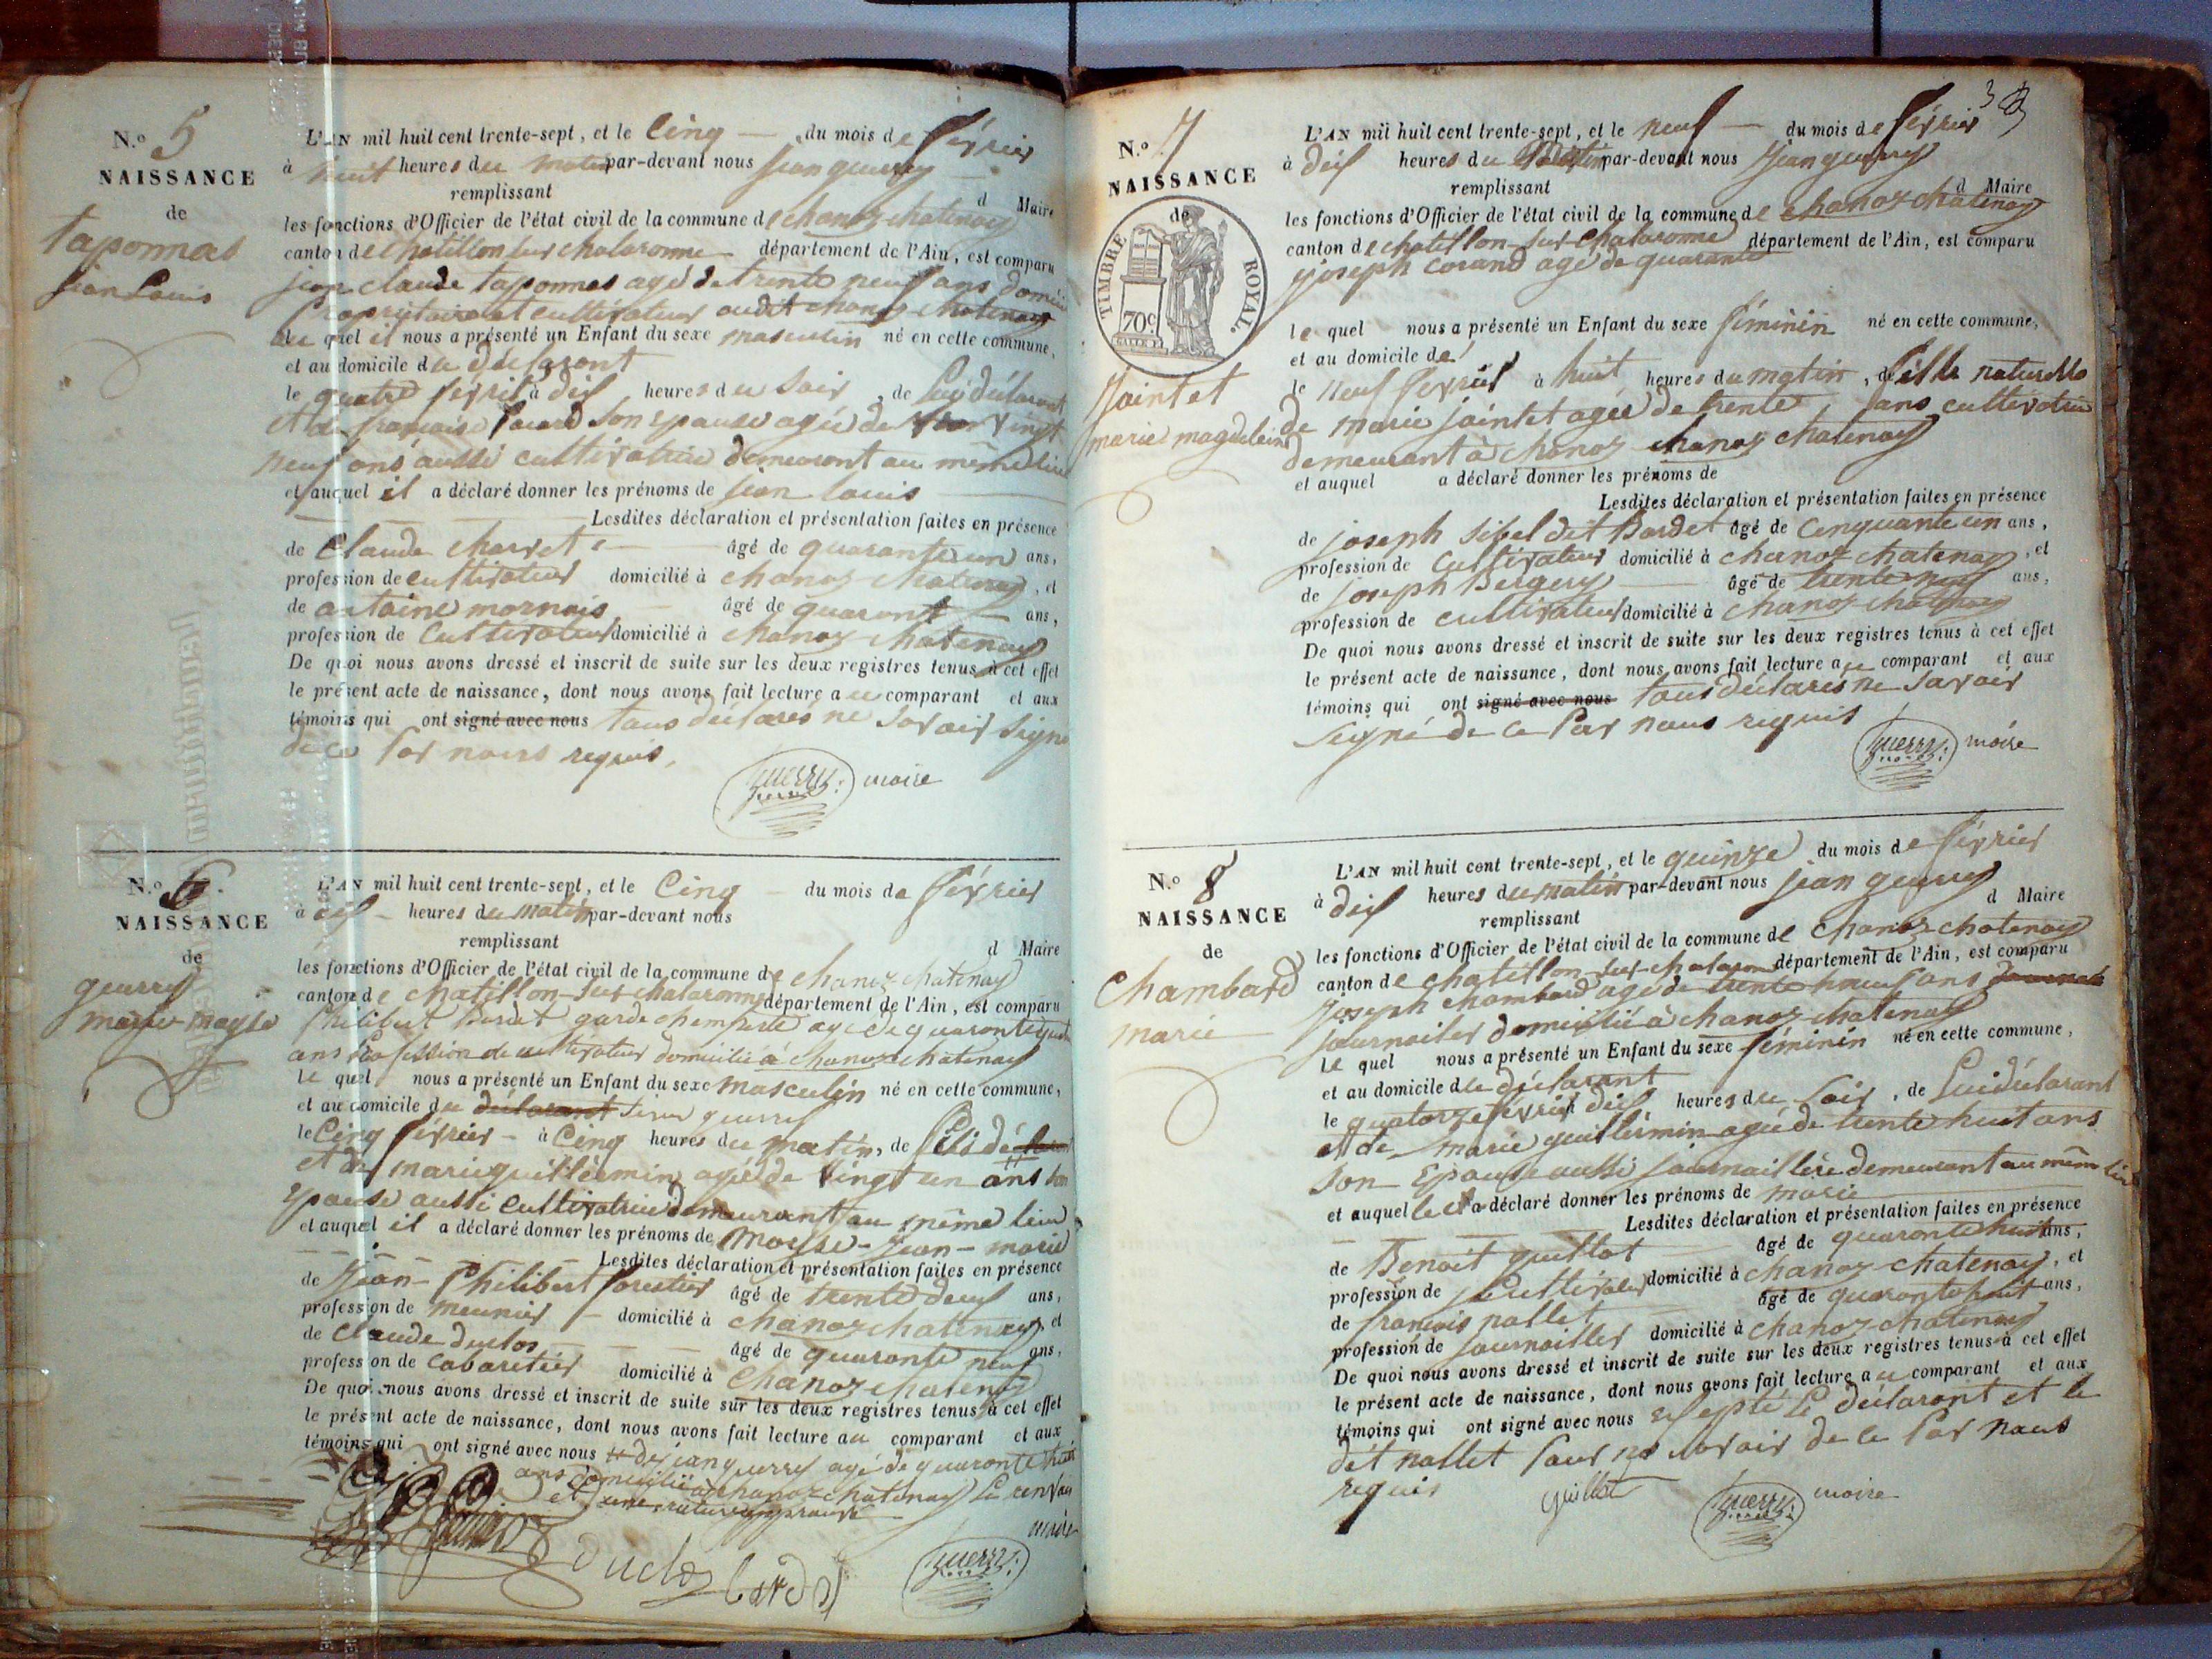 N.o 5
NAISSANCE
de
taponnas
jean Louis
L'AN mil huit cent trente-sept, et le Cinq du mois de février
à huit heures du matin par-devant nous jean guerry
remplissant d Maire
les fonctions d'Officier de l'état civil de la commune de chanoz chatenay
canton de chatillon sur chalaronne département de l'Ain, est comparu
jean claude taponnas agé de trente neuf ans
Propriétaire et cultivateur audit chanoz chatenay
le quel il nous a présenté un Enfant du sexe masculin né en cette commune,
et au domicile du déclarant
le quatre février à dix heures du soir, de lui déclarant
et de françoise son epouse agée de vingt
neuf ans aussi cultivatrice demeurant au même lieu
et auquel il a déclaré donner les prénoms de jean louis
Lesdites déclaration et présentation faites en présence
de Claude charvet âgé de quarante un ans,
profession de cultivateur domicilié à chanoz chatenay, et
de antoine mornay âgé de quarante ans,
profession de cultivateur domicilié à chanoz chatenay
De quoi nous avons dressé et inscrit de suite sur les deux registres tenus à cet effet
le présent acte de naissance, dont nous avons fait lecture au comparant et aux
témoins qui ont signé avec nous tous déclarés ne savoir signé
de ce par nous requis.
guerry maire
N.o 6
NAISSANCE
de
guerry
L'AN mil huit cent trente-sept, et le Cinq du mois de février
à dix heures du matin par-devant nous
remplissant d Maire
les fonctions d'Officier de l'état civil de la commune de chanoz chatenay
canton de chatillon-sur-chalaronne département de l'Ain, est comparu
Philibert Bardet garde champetre agé de quarante quatre
ans Profession de cultivateur domicilié à chanoz chatenay
le quel nous a présenté un Enfant du sexe masculin né en cette commune,
et au domicile du déclarant guerry
le Cinq février à Cinq heures du matin, de
et de marie guillermin agée de Vingt un ans son
epouse aussi cultivatrice demeurant au même lieu
et auquel il a déclaré donner les prénoms de moyse-jean-marie
Lesdites déclaration et présentation faites en présence
de Jean-Philibert forestier âgé de trente deux ans,
profession de meunier domicilié à chanoz chatenay, et
de claude duclos âgé de quarante neuf ans,
profession de cabaretier domicilié à chanoz chatenay
De quoi nous avons dressé et inscrit de suite sur les deux registres tenus à cet effet
le présent acte de naissance, dont nous avons fait lecture au comparant et aux
témoins qui ont signé avec nous # de jean guerry agé de quarante huit
ans domicilié à chanoz chatenay Le renvoi
et une rature approuvé
maire
Duclos bardet guerry
3
N.o 7
NAISSANCE
de
TIMBRE ROYAL.
70c.
Jointet
marie magdeleine
L'AN mil huit cent trente-sept, et le neuf du mois de février
à dix heures du matin par-devant nous Jean guerry
remplissant d Maire
les fonctions d'Officier de l'état civil de la commune de chanoz chatenay
canton de chatillon-sur-chalaronne département de l'Ain, est comparu
joseph corand agé de quarante
le quel nous a présenté un Enfant du sexe féminin né en cette commune,
et au domicile de
le neuf février à huit heures du matin, de fille naturelle
de marie jointet agée de trente ans cultivatrice
demeurant à chanoz chanoz chatenay
et auquel a déclaré donner les prénoms de
Lesdites déclaration et présentation faites en présence
de joseph Sibel dit Bardet âgé de cinquante un ans,
profession de cultivateur domicilié à chanoz chatenay, et
de joseph Bergery âgé de trente neuf ans,
profession de cultivateur domicilié à chanoz chatenay
De quoi nous avons dressé et inscrit de suite sur les deux registres tenus à cet effet
le présent acte de naissance, dont nous avons fait lecture au comparant et aux
témoins qui ont signé avec nous tous déclarés ne savoir
signé de ce par nous requis
guerry maire
N.o 8
NAISSANCE
de
Chambard
marie
L'AN mil huit cent trente-sept, et le quinze du mois de février
à dix heures du matin par-devant nous jean guerry
remplissant d Maire
les fonctions d'Officier de l'état civil de la commune de Chanoz-chatenay
canton de chatillon-sur-chalaronne département de l'Ain, est comparu
Joseph chambard agé de trente neuf ans
journailler domicilié à chanoz chatenay
le quel nous a présenté un Enfant du sexe féminin né en cette commune,
et au domicile du déclarant
le quatorze février à dix heures du soir, de lui déclarant
et de marie guillermin agée de trente huit ans
Son Epouse aussi journaillère demeurant au même lieu
et auquel le a déclaré donner les prénoms de marie
Lesdites déclaration et présentation faites en présence
de Benoit guillot âgé de quarante huit ans,
profession de cultivateur domicilié à chanoz chatenay, et
de françois nallet âgé de quarante huit ans,
profession de journailler domicilié à chanoz chatenay
De quoi nous avons dressé et inscrit de suite sur les deux registres tenus à cet effet
le présent acte de naissance, dont nous avons fait lecture au comparant et aux
témoins qui ont signé avec nous excepté le déclarant et le
dit nallet pour ne savoir de ce par nous
requis
guillot guerry maire